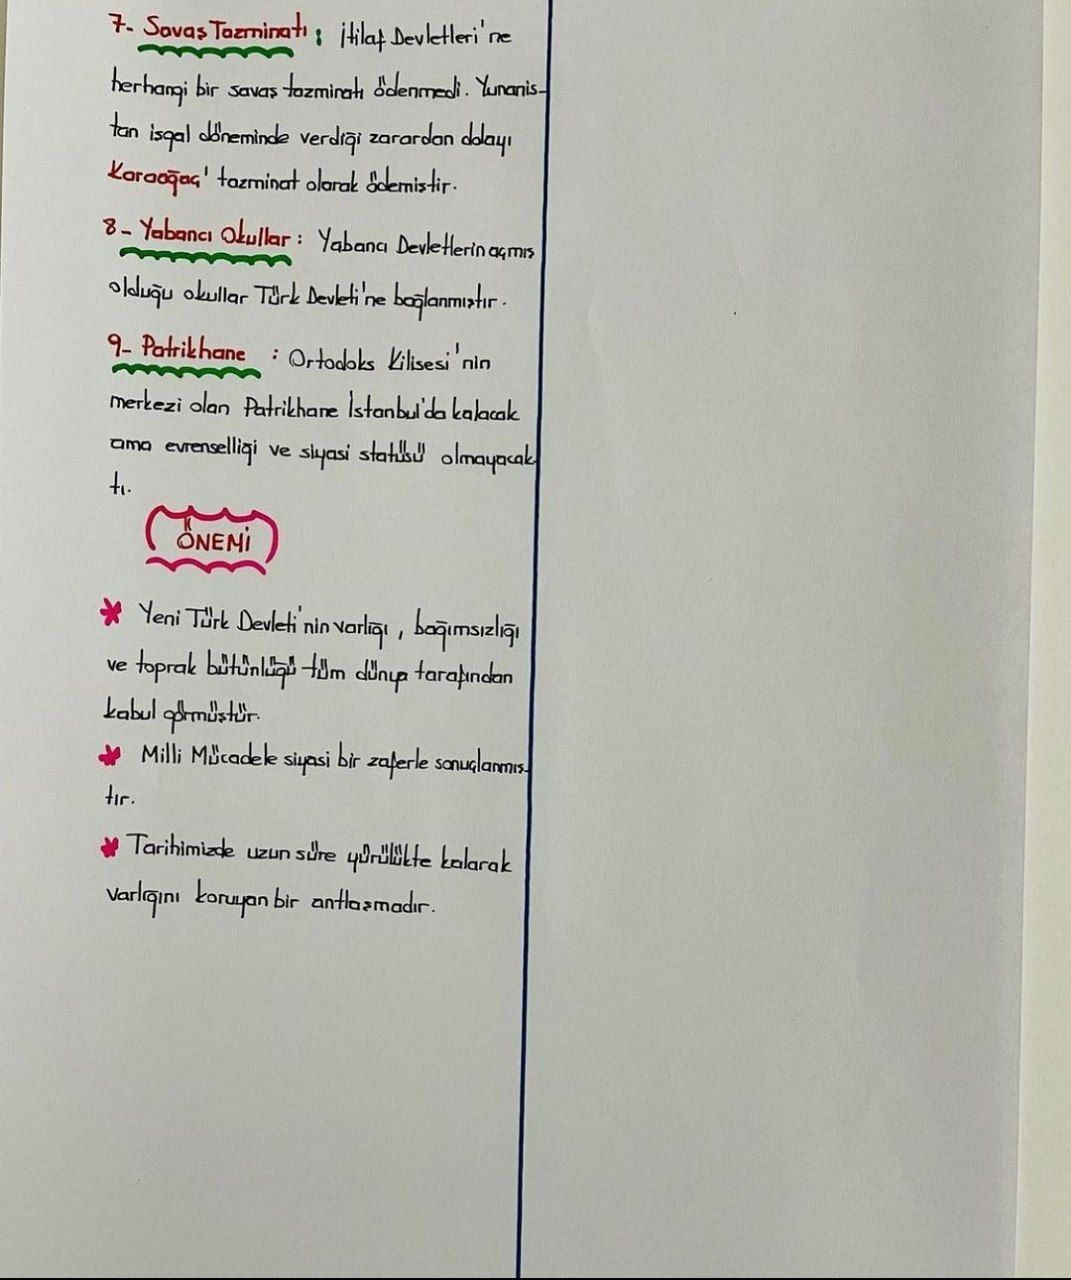 7- Savaş Tazminatı : İtilaf Devletleri'ne
herhangi bir savaş tazminatı ödenmedi. Yunanis-
tan işgal döneminde verdiği zarardan dolayı
Karaağaç' tazminat olarak ödemiştir.
8- Yabancı Okullar : Yabancı Devletlerin açmış
olduğu okullar Türk Devleti'ne bağlanmıştır.
9- Patrikhane : Ortodoks Kilisesi'nin
merkezi olan Patrikhane İstanbul'da kalacak
ama evrenselliği ve siyasi statüsü olmayacak
tı.
ÖNEMİ
* Yeni Türk Devleti'nin varlığı, bağımsızlığı
ve toprak bütünlüğü tüm dünya tarafından
kabul görmüştür.
* Milli Mücadele siyasi bir zaferle sonuçlanmış-
tır.
* Tarihimizde uzun süre yürülükte kalarak
varlığını koruyan bir antlaşmadır.